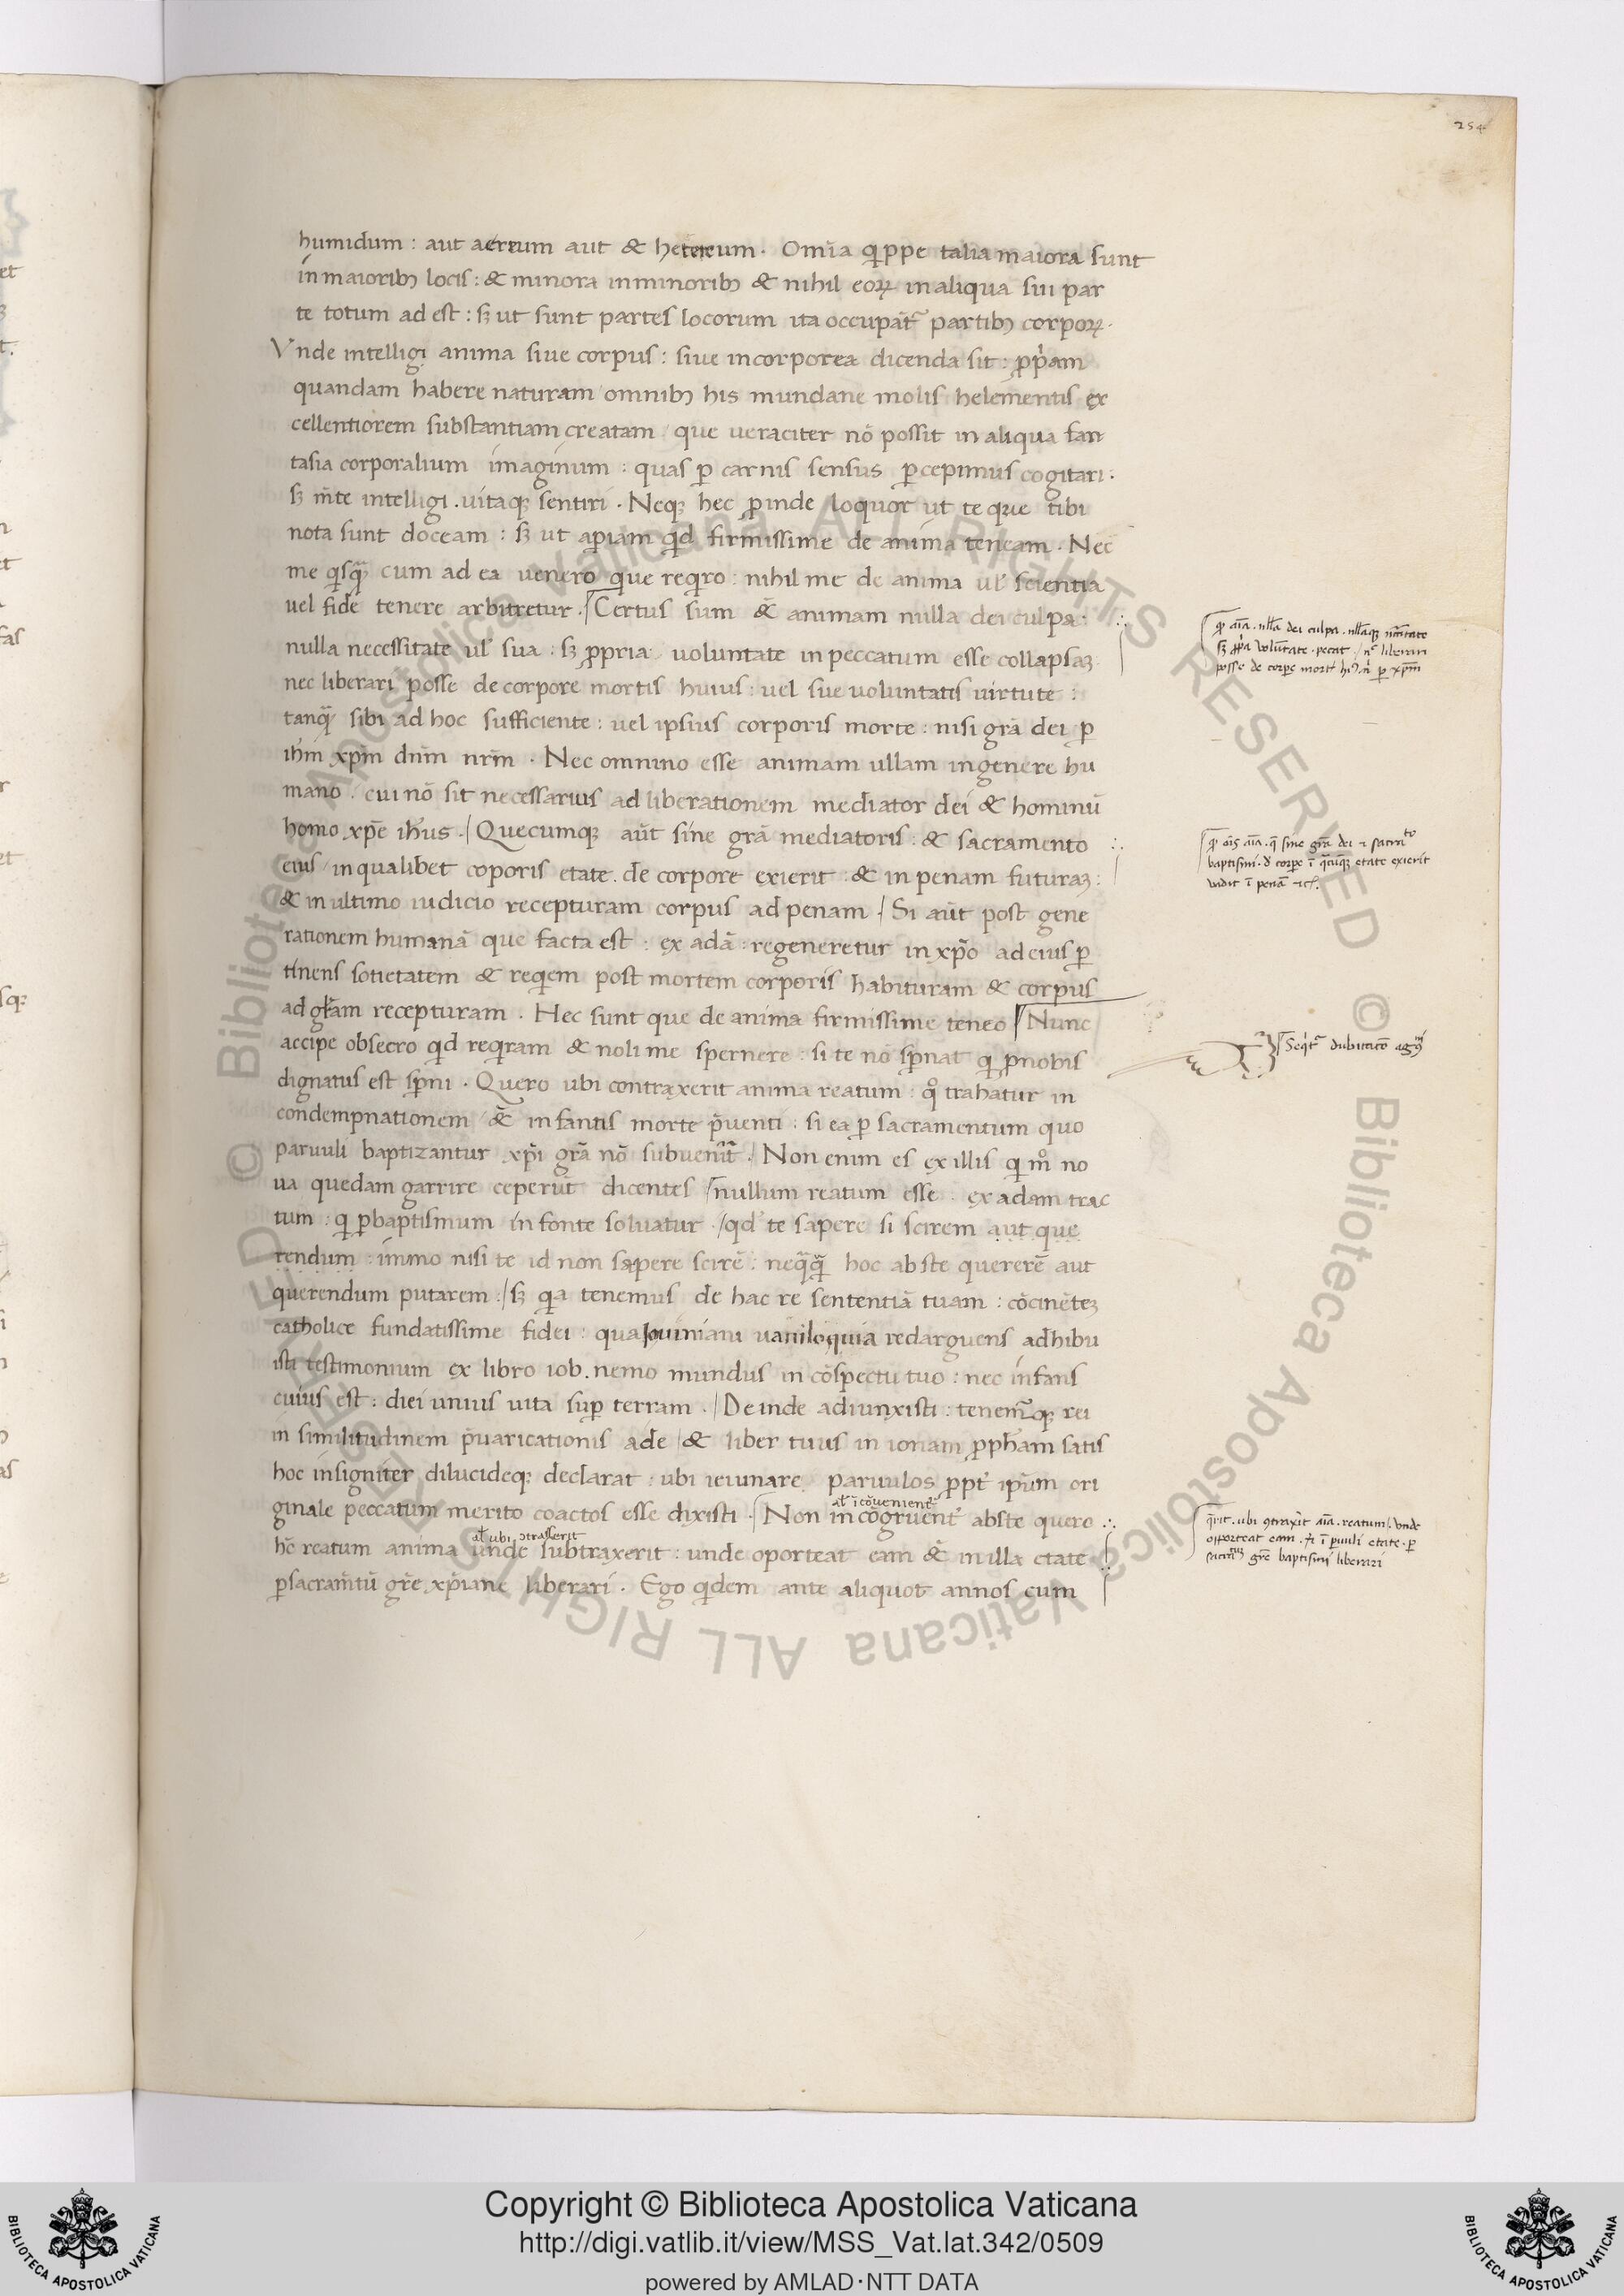 254
humidum : aut aereum aut & hetereum . Omīa q̇ppe talia maiora sunt
in maioribȝ locis : & minora in minoribȝ & nihil eoꝝ in aliqua sui par
te totum ad est : sȝ ut sunt partes locorum ita occupāt᷑ partibȝ corpoꝝ .
Vnde intelligi anima siue corpus : siue incorporea dicenda sit : ꝓp̄am
quandam habere naturam omnibȝ his mundane molis helementis ex
cellentiorem substantiam creatam que ueraciter nō possit in aliqua fan
tasia corporalium imaginum : quas ꝑ carnis sensus ꝑcepimus cogitari .
sȝ m̄te intelligi . uitaqȝ sentiri . Neqȝ hec ꝓinde loquor ut te que tibi
nota sunt doceam : sȝ ut apiam qd firmissime de anima teneam . Nec
me qisq̄ cum ad ea uenero que reqro : nihil me de anima ul' scientia
uel fide tenere arbitretur . Certus sum & animam nulla dei culpa .
nulla necessitate ul' sua : sȝ ꝓpria uoluntate in peccatum esse collapsaȝ
nec liberari posse de corpore mortis huius : uel sue uoluntatis uirtute :
tanq̄ sibi ad hoc sufficiente : uel ipsius corporis morte : nisi grā dei ꝑ
ihm xp̄m dn̄m nr̄m . Nec omnino esse animam ullam in genere hu
mano . cui nō sit necessarius ad liberationem mediator dei & hominū
homo xp̄c ihus . Quecumqȝ aūt sine grā mediatoris : & sacramento
eius in qualibet coporis etate de corpore exierit : & in penam futuraȝ :
& in ultimo iudicio recepturam corpus ad penam / Si aūt post gene
rationem humanā que facta est : ex adā : regeneretur in xp̄o ad eius ꝑ
tinens sotietatem & reqem post mortem corporis habituram & corpus
ad gl'am recepturam . Hec sunt que de anima firmissime teneo Nunc
accipe obsecro qd reqram & noli me spernere : si te nō sp̄nat q ꝓ nobis
dignatus est sp̄ni . Quero ubi contraxerit anima reatum : qͦ trahatur in
condempnationem & infantis morte p̄uenti : si ea ꝑ sacramentum quo
paruuli baptizantur xp̄i grā nō subuenit᷑ . Non enim es ex illis q mͦ no
ua quedam garrire ceperūt dicentes nullum reatum esse : ex adam trac
tum : q ꝑ baptismum in fonte soluatur . / qd' te sapere si scirem aut que
rendum : immo nisi te id non sapere scirē : neq̄q̄ hoc abste quererē aut
querendum putarem : / sȝ qa tenemus de hac re sententiā tuam : cōcinēteȝ
catholice fundatissime fidei : qua Iouiniani uaniloquia redarguens adhibu
isti testimonium ex libro iob . nemo mundus in cōspectu tuo : nec infans
cuius est : diei unius uita suꝑ terram . / De inde adiunxisti : tenem᷑qȝ rei
in similitudinem p̄uaricationis ade / & liber tuus in ionam ꝓph'am satis
hoc insigniter dilucideqȝ declarat : ubi ieiunare paruulos ꝓpt' ip̄um ori
al' īcōuenient'
ginale peccatum merito coactos esse dixisti . Non incōgruent' abste quero
al' ubi ɔtraxerit
hc̄ reatum anima unde subtraxerit : unde oporteat eam & in illa etate
ꝑ sacram̄tū grē xp̄iane liberari . Ego qdem ante aliquot annos cum
q̄ aīa . nlla dei culpa . nllaqȝ nc̄c̄itate
sȝ ꝓp̄a volūtate . pecat / n̄ liberari
posse de corpe mort' hiꝰ . n̄ ꝑ xp̄m
q̄ ōis aīa . q̄ sine grā dei & sacr̄to
baptismi . d corpe ī q̄cūqȝ etate exierit
vadit ī penā &c̄ .
Seqt᷑ dubitatō agꝰni
q̄rit . ubi ꝯtraxit aīa . reatum / . vnde
opporteat eam . & ī puuli etate . ꝑ
sacr̄m grē baptismi liberari
Copyright © Biblioteca Apostolica Vaticana
http://digi.vatlib.it/view/MSS_Vat.lat.342/0509
powered by AMLAD·NTT DATA
BIBLIOTECA APOSTOLICA VATICANA
BIBLIOTECA APOSTOLICA VATICANA
© Biblioteca Apostolica Vaticana ALL RIGHTS RESERVED © Biblioteca Apostolica Vaticana ALL RIGHTS RESERVED